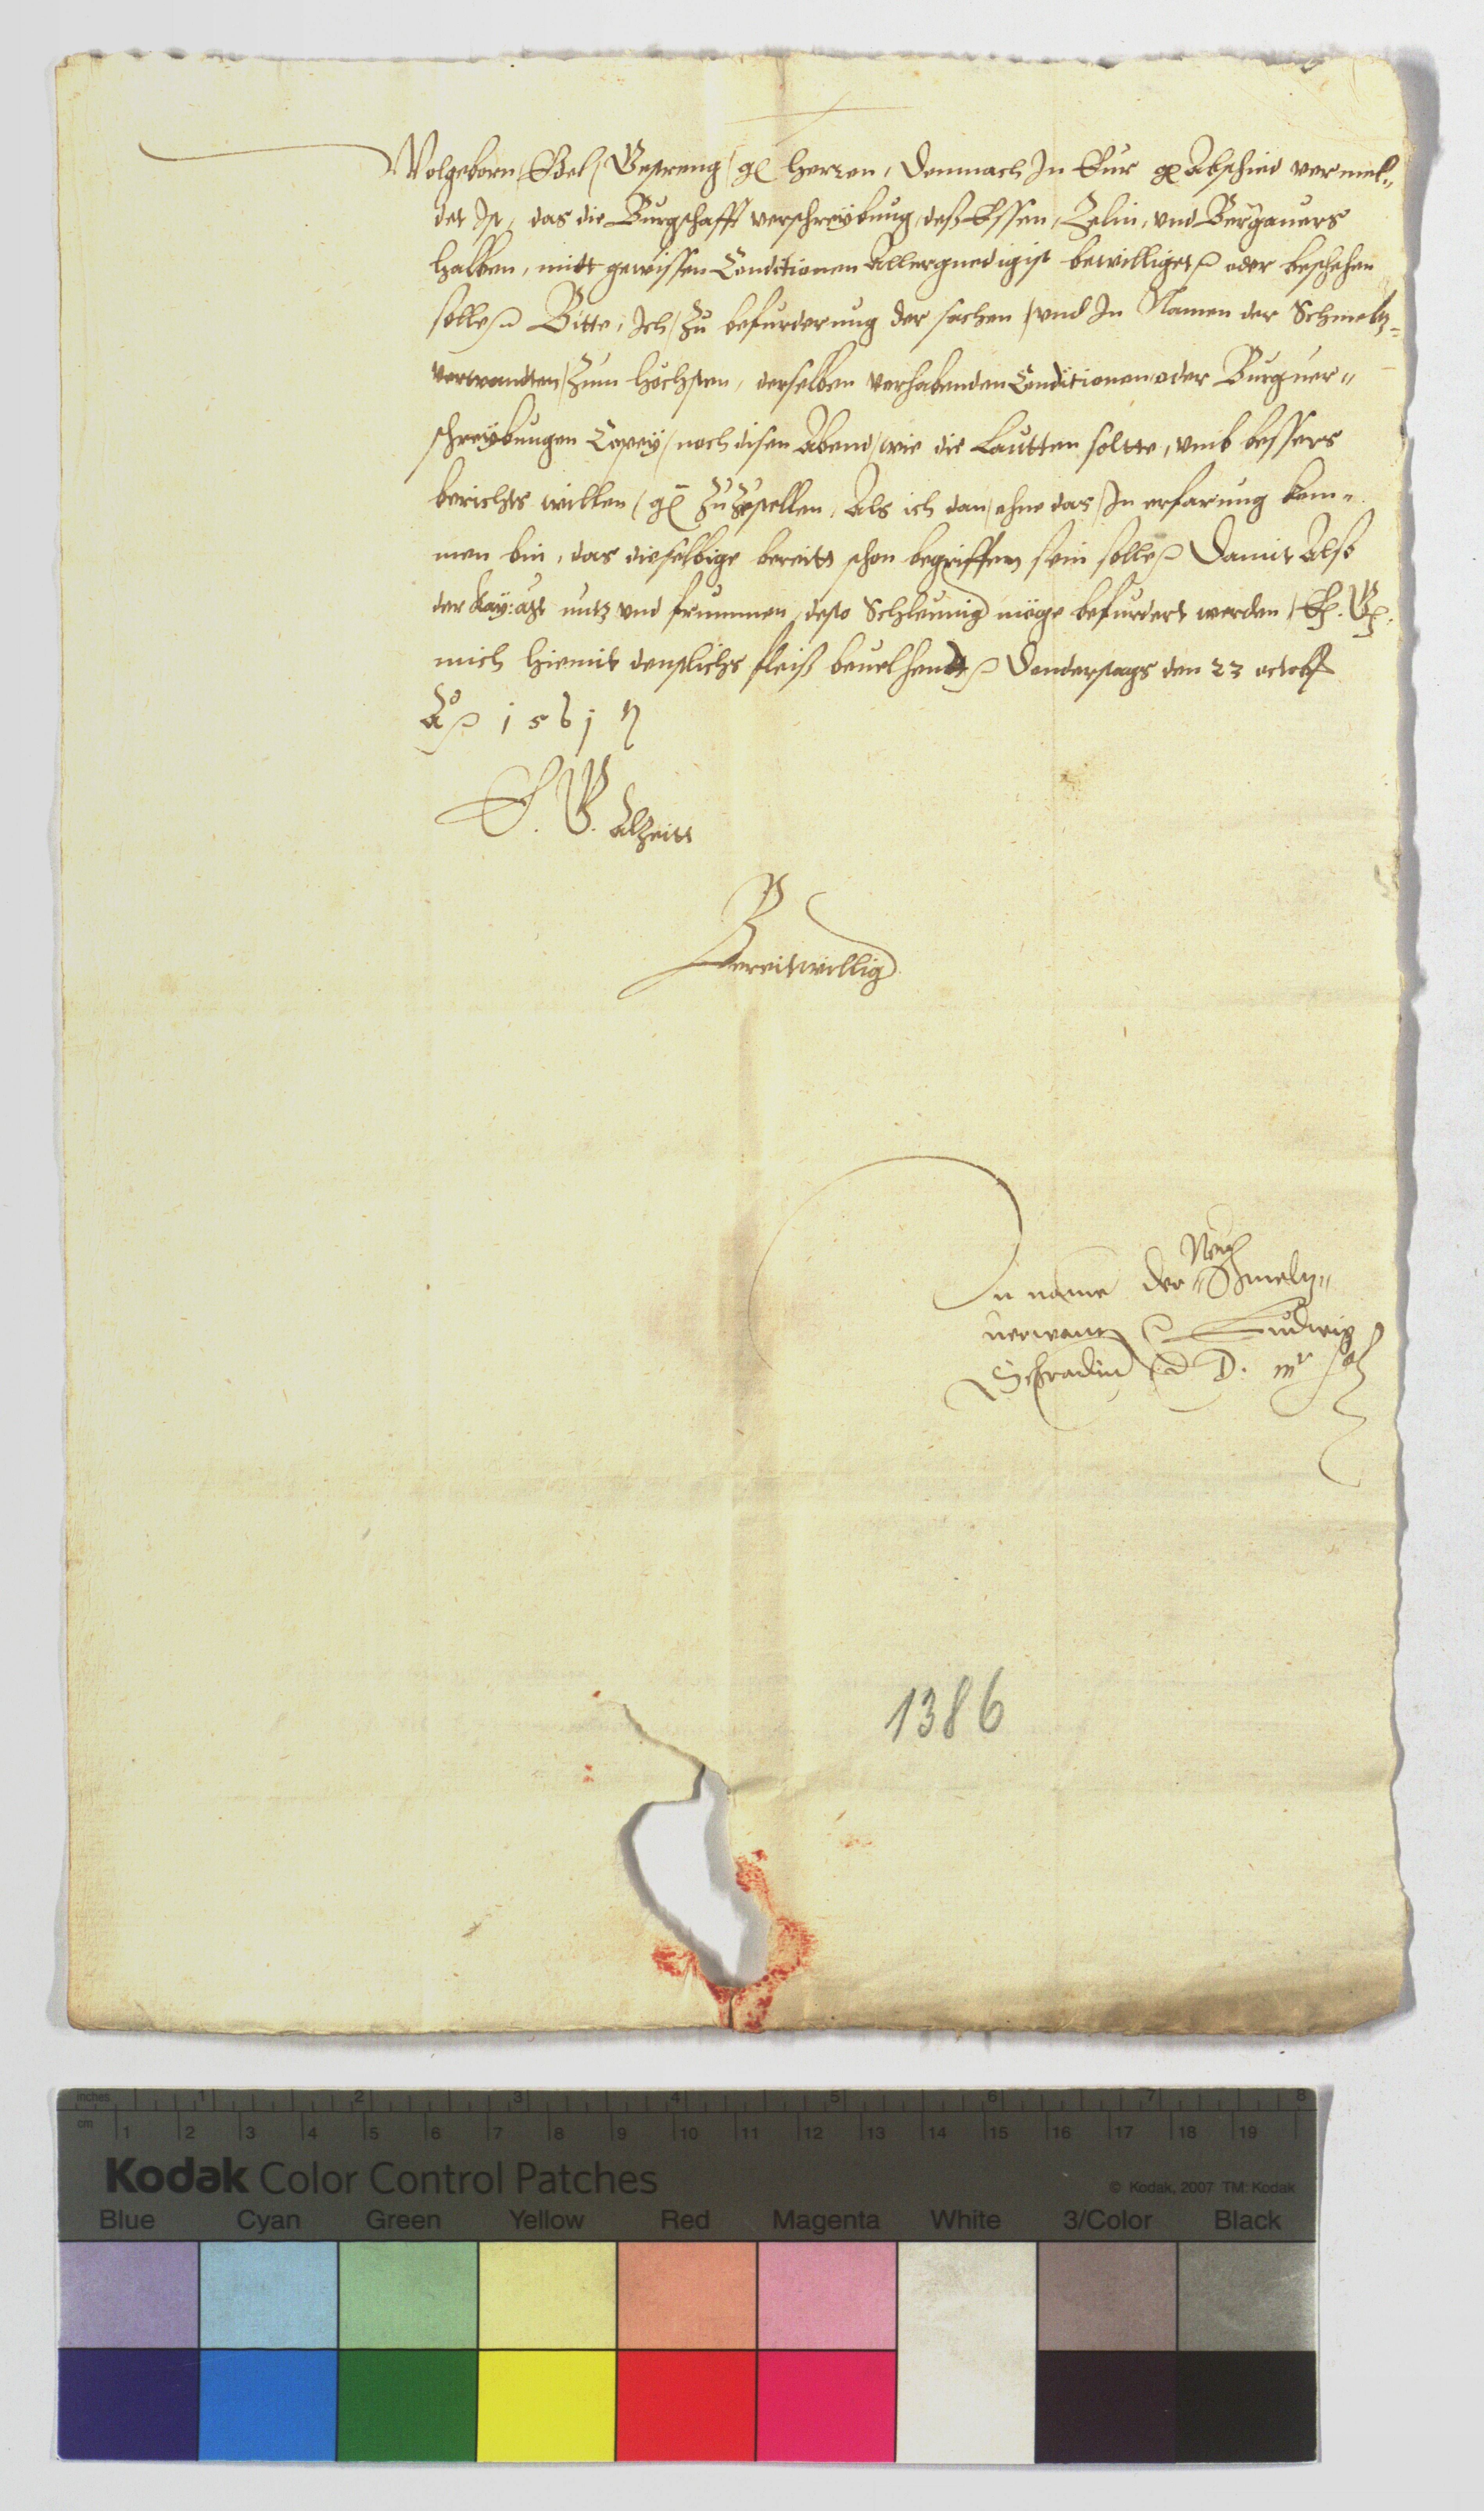 Wolgeborn, Edel, Gestreng, gl Herren, Demnach In Eur gn Abschied vermel„
det Ist, das die Burgschafft verschreybung, deß Essen, Zelin, vnd Bergauers
halben, mitt gewissen Conditionen Allergnedigist bewilliget, oder beschehen
solle, Bitte, Ich, Zu befurderung der sachen, vnd In Namen der Schmeltz„
verwandten, Zum höchsten, derselben verhabenden Conditionen, oder Burguer„
schreybungen Copey, noch disen Abend, wie die Lautten soltte, vmb bessers
berichts willen, gn ZuZustellen, Als ich dan, ohne das, In erfarung kom„
men bin, das dieselbige bereits schon begriffen sein solle, Damit Also
der Kay: Mt nutz vnd frummen, desto Schleunig möge befurdert werden, E. G.
mich hiemit denstlichs fleiß beuelhendt, Donderstags den 23 octob
Ao 1561
E. G. Alzeitt
Bereitwillig
In name der New Schmeltz„
uerwant Ludwig
Schradin D. mr
1386
inches 1 2 3 4 5 6 7 8
cm 1 2 3 4 5 6 7 8 9 10 11 12 13 14 15 16 17 18 19
Kodak Color Control Patches
© Kodak, 2007 TM: Kodak
Blue Cyan Green Yellow Red Magenta White 3/Color Black